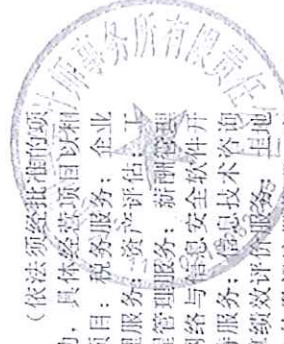 （依法须经批准的项
，具体经营项目以相
项目：税务服务；企业
理服务；资产评估；工
程管理服务；薪酬管理
网络与信息安全软件开
服务；信息技术咨询
绩效评价服务；
师事务所有限责任